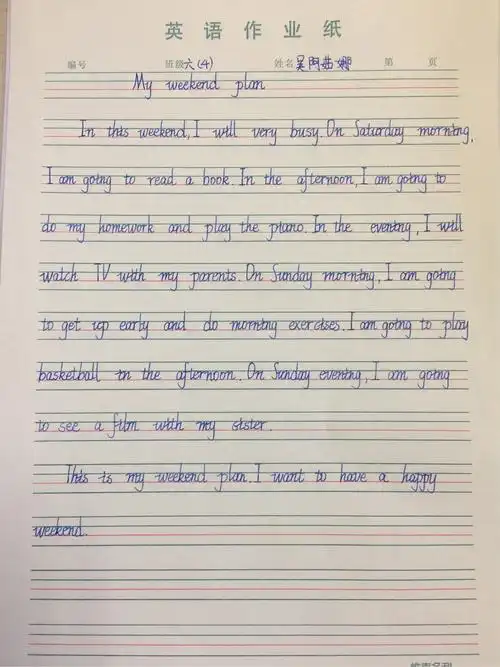 英语作业纸
编号 班级六(4) 姓名吴阿茹娜 第 页
My weekend plan
In this weekend, I will very busy. On Saturday morning,
I am going to read a book. In the afternoon, I am going to
do my homework and play the piano. In the evening, I will
watch TV with my parents. On Sunday morning, I am going
to get up early and do morning exercises. I am going to play
basketball in the afternoon. On Sunday evening, I am going
to see a film with my sister.
This is my weekend plan. I want to have a happy
weekend.